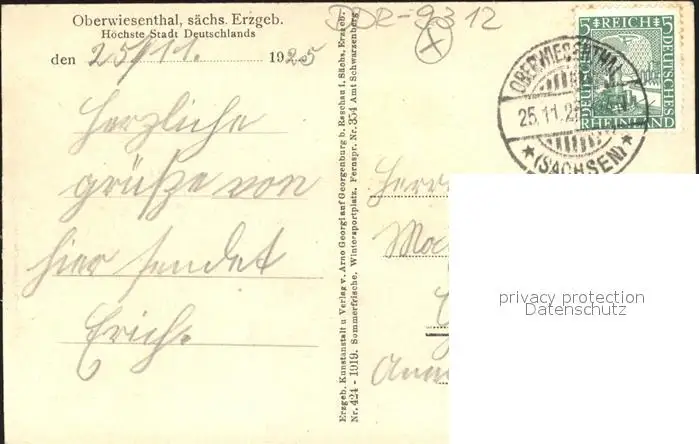 Oberwiesenthal, sächs. Erzgeb.
Höchste Stadt Deutschlands
den 25/11. 1925
Herzliche
grüße von
hier sendet
Erich.
Erzgeb. Kunstanstalt u Verlag v. Arno Georgi auf Georgenburg b. Raschau i. Sächs. Erzgeb.
Nr. 424 - 1919. Sommerfrische, Wintersportplatz. Fernspr. Nr. 354 Amt Schwarzenberg
DDR-9312
5 REICH 5
DEUTSCHES
RHEINLAND
OBERWIESENTHAL
25.11.2
★ (SACHSEN) ★
Herrn
privacy protection
Datenschutz